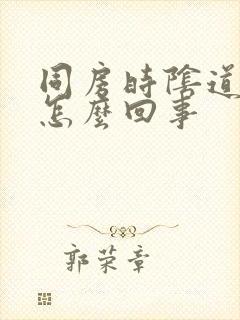 同房时陰道
怎麼回事
郭荣章